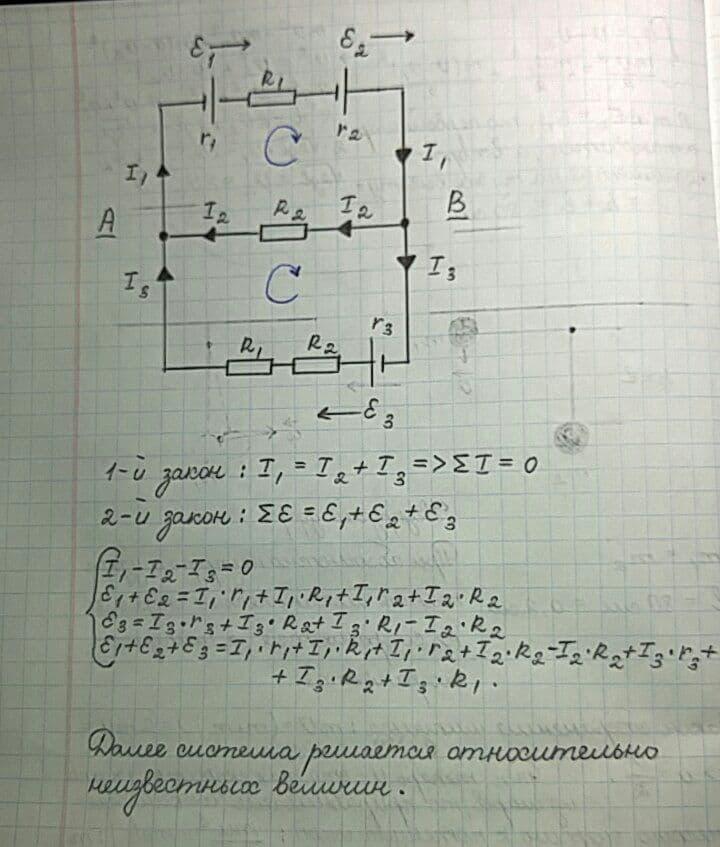 ℰ₁ → ℰ₂ →
R₁
r₁ r₂
I₁ I₁
A I₂ R₂ I₂ B
I₃ I₃
r₃
R₁ R₂
← ℰ₃
1-й закон : I₁ = I₂ + I₃ => Σ I = 0
2-й закон : Σℰ = ℰ₁ + ℰ₂ + ℰ₃
I₁ - I₂ - I₃ = 0
ℰ₁ + ℰ₂ = I₁ · r₁ + I₁ · R₁ + I₁ r₂ + I₂ · R₂
ℰ₃ = I₃ · r₃ + I₃ · R₂ + I₃ · R₁ - I₂ · R₂
ℰ₁ + ℰ₂ + ℰ₃ = I₁ · r₁ + I₁ · R₁ + I₁ · r₂ + I₂ · R₂ - I₂ · R₂ + I₃ · r₃ +
+ I₃ · R₂ + I₃ · R₁ .
Далее система решается относительно
неизвестных величин .